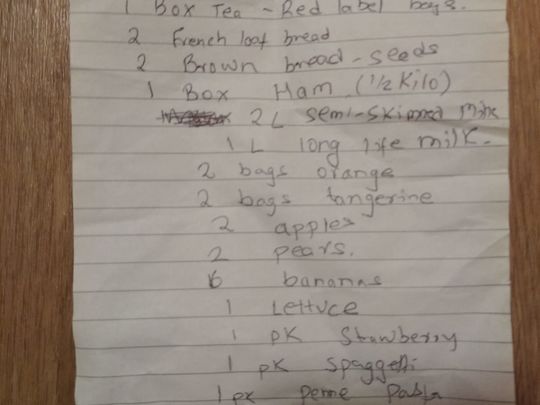 1 Box Tea - Red label bags.
2 French loaf bread
2 Brown bread - seeds
1 Box Ham (1/2 Kilo)
2 L semi-skimmed Milk
1 L long life milk.
2 bags orange
2 bags tangerine
2 apples
2 pears.
6 bananas
1 Lettuce
1 pK Strawberry
1 pK spaggetti
1 pK penne Pasta